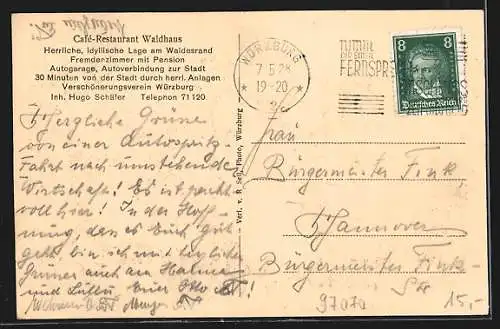 Café-Restaurant Waldhaus
Herrliche, idyllische Lage am Waldesrand
Fremdenzimmer mit Pension
Autogarage, Autoverbindung zur Stadt
30 Minuten von der Stadt durch herrl. Anlagen
Verschönerungsverein Würzburg
Inh. Hugo Schäfer Telephon 71120
Herzliche Grüße
von einer Autospritz-
Fahrt nach umstehender
Wirtschaft! Es ist pracht-
voll hier! In der Hoff-
nung, dass es Euch gut
geht, bin ich mit herzlichen
Grüßen auch an
und Euer Otto
Verl. v. Würzburg
WÜRZBURG
7.5.28
* 19-20 *
FERNSPR
8 8
Deutsches Reich
Frau
Bürgermeister Fink,
Hannover
Bürgermeister Fink-
Str
97070
15,-